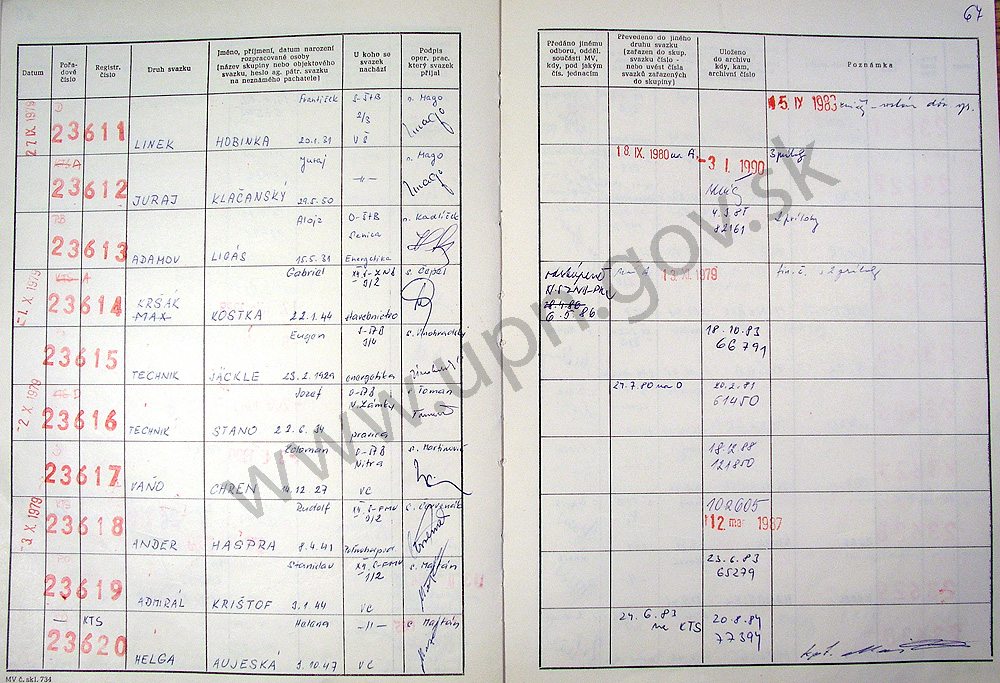 67
Datum
Pořa-
dové
číslo
Registr.
číslo
Druh svazku
Jméno, příjmení, datum narození
rozpracované osoby
(název skupiny nebo objektového
svazku, heslo ag. pátr. svazku
na neznámého pachatele)
U koho se
svazek
nachází
Podpis
oper. prac.
který svazek
přijal
Předáno jinému
odboru, odděl.
součásti MV,
kdy, pod jakým
čís. jednacím
Převedeno do jiného
druhu svazku
(zařazen do skup.
svazku číslo -
nebo uvést čísla
svazků zařazených
do skupiny)
Uloženo
do archivu
kdy, kam,
archivní číslo
Poznámka
27 IX. 1979
23611
LINEK
František
HOBINKA 20.1.31
S-ŠtB
2/3
VŠ
n. Mago
15 IX 1983
23612
JURAJ
Juraj
KLAČANSKÝ 29.5.50
-"-
n. Mago
18. IX. 1980 na A.
-3 I. 1990
3 prílohy
23613
ADAMOV
Alojz
LIGÁS 15.5.31
O-ŠtB
Senica
Energetika
n. Kadlíček
82161
2 prílohy
-1. X. 1979
23614
KRŠÁK
MAX
Gabriel
KOSTKA 22.1.44
stavebníctvo
6.5.86
1979
23615
TECHNIK
Eugen
JÄCKLE 23.2.1929
S-ŠtB
energetika
18.10.83
66791
-2 X. 1979
23616
TECHNIK
Jozef
STANO 22.6.34
O-ŠtB
N. Zámky
s. Toman
27.7.80 na D
20.2.81
61450
23617
VAŇO
Koloman
CHREN 14.12.27
O-ŠtB
Nitra
VC
s. Martinovič
18.12.88
121850
-3 X. 1979
23618
ANDER
Rudolf
HASPRA 8.4.41
102605
12. mar. 1987
23619
ADMIRÁL
Stanislav
KRIŠTOF 3.1.44
1/2
VC
s. Majtán
23.6.83
65279
KTS
23620
HELGA
Helena
AUJESKÁ 3.10.47
-"-
VC
s. Majtán
24.6.83
na KTS
20.8.84
77394
MV č. skl. 734
www.upn.gov.sk